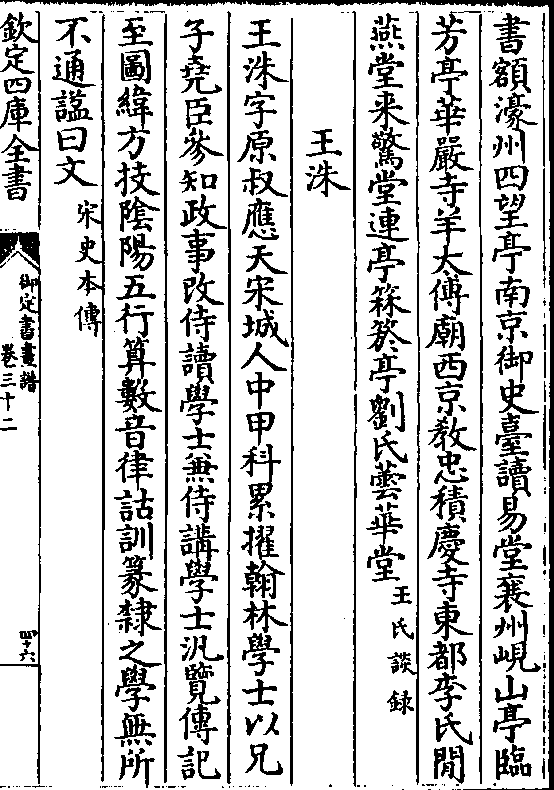 書額濠州四望亭南京御史臺讀易堂襄州峴山亭臨
芳亭華嚴寺羊太傅廟西京敎忠積慶寺東都李氏閒
燕堂來驚堂連亭箖箊亭劉氏曇華堂王氏談錄
王洙
王洙字原叔應天宋城人中甲科累擢翰林學士以兄
子堯臣參知政事改侍讀學士兼侍講學士汎覽傳記
至圖緯方技陰陽五行算數音律詁訓篆隸之學無所
不通諡曰文宋史本傳
欽定四庫全書
御定書畫譜
卷三十二
四十六